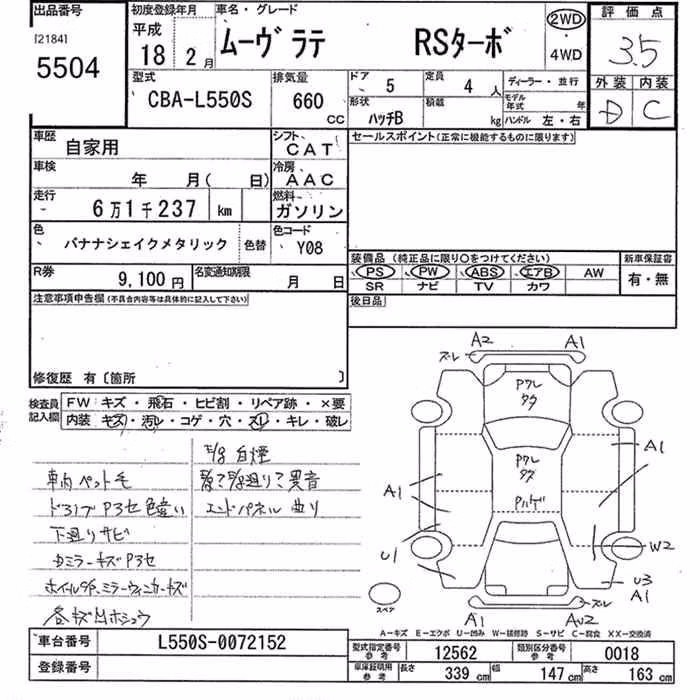 出品番号
[2184]
5504
初度登録年月
平成
18 2 月
車名・グレード
ムーヴラテ RSターボ
2WD
・
4WD
評価点
3.5
外装 内装
D C
型式
CBA-L550S
排気量
660
CC
ドア 5
定員 4 人
ディーラー・並行
形状
ハッチB
積載 kg
モデル年式 年
ハンドル 左・右
車歴
自家用
シフト
CAT
セールスポイント(正常に機能するものに限ります)
車検
年 月( 日)
冷房
AAC
走行
6万1千237 km
燃料
ガソリン
色
バナナシェイクメタリック
色替
色コード
Y08
装備品 (純正品に限り○をつけてください)
新車保証書
PS PW ABS エアB AW
SR ナビ TV カワ
有・無
R券
9,100円
名変通知期限
月 日
後日品
注意事項申告欄(不具合内容等は具体的に記入して下さい)
修復歴 有〔箇所 〕
検査員記入欄
FW キズ・飛石・ヒビ割・リペア跡・×要
内装 キズ・汚レ・コゲ・穴・スレ・キレ・破レ
白煙
車内ペット毛
異音
P3セ色違い
エンドパネル曲り
下廻りサビ
ミラーキズP3セ
A2 A1
ズレ
Pワレ
タタ
Pワレ
タタ
Pハゲ
A1
A1
U1
W2
U3
A1
スペア
ズレ
A1
AU2
A-キズ E-エクボ U-凹み W-補修跡 S-サビ C-腐食 XX-交換済
車台番号
L550S-0072152
登録番号
型式指定番号
参考
12562
類別区分番号
参考
0018
車庫証明用
参考
長さ 339 cm 幅 147 cm 高さ 163 cm